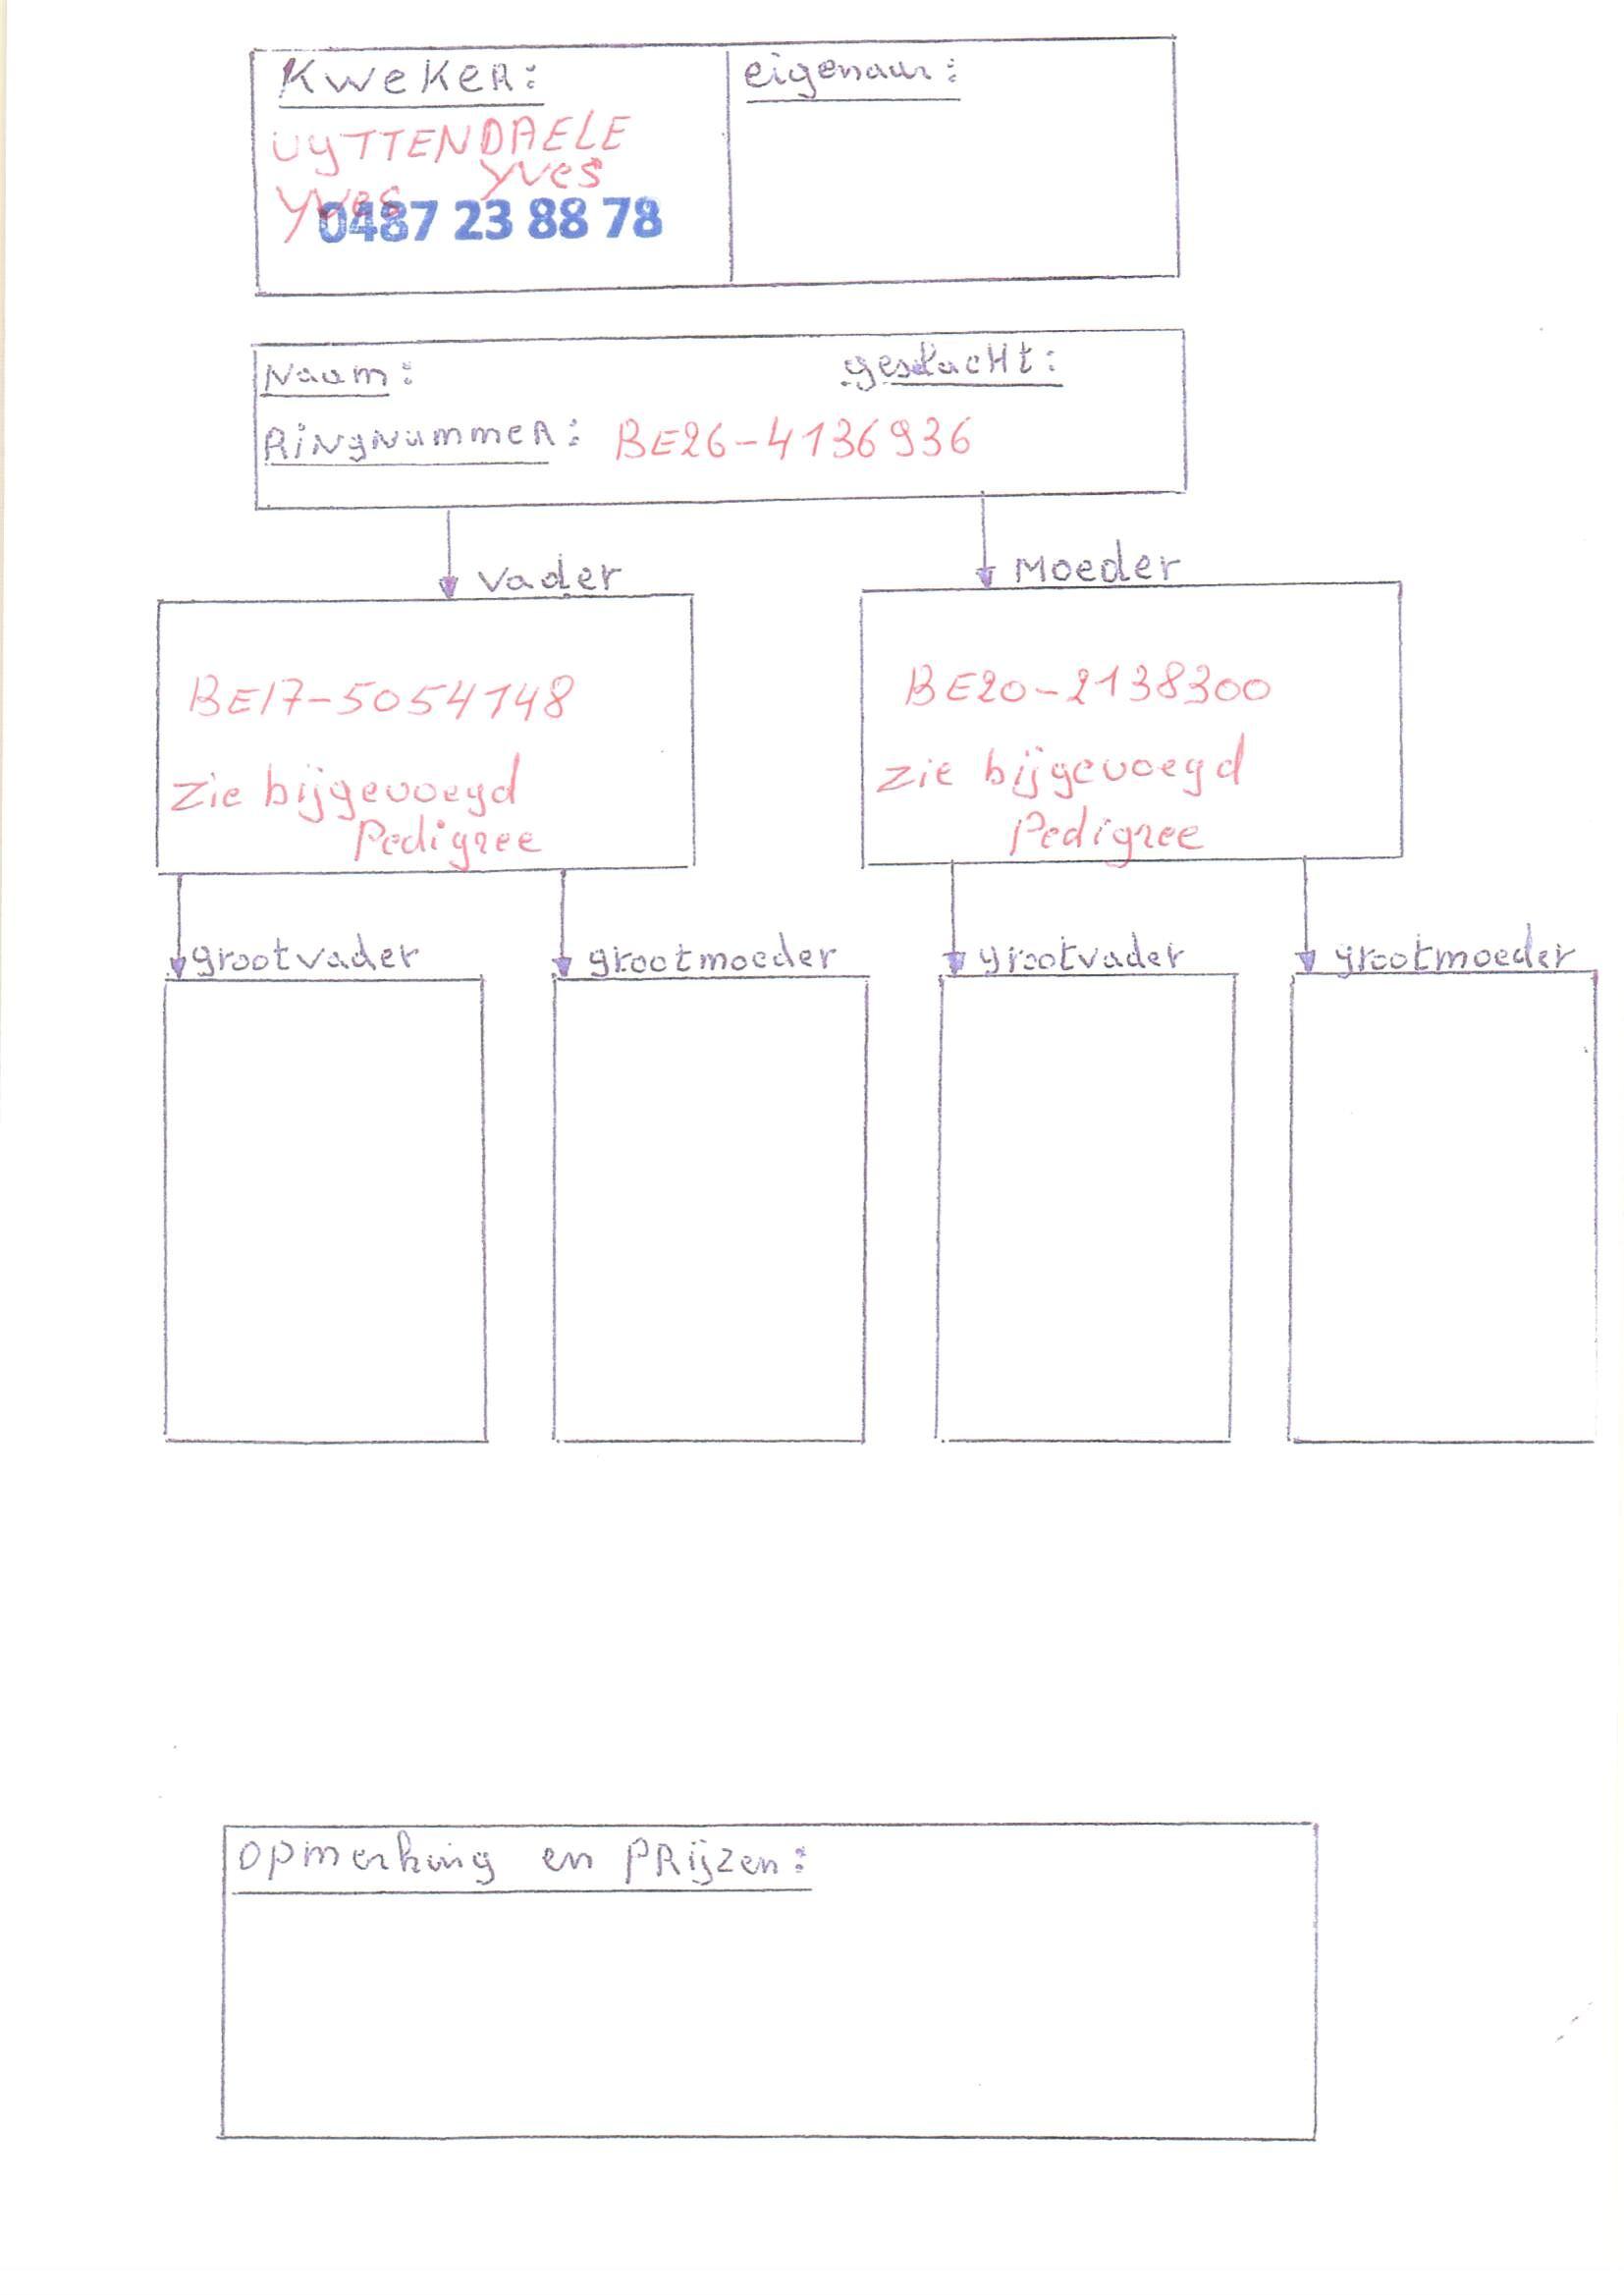 Kweker:
eigenaar:
UYTTENDAELE
Yves
Yves
0487 23 88 78
Naam:
geslacht:
Ringnummer: BE26-4136936
Vader
Moeder
BE17-5054148
BE20-2138300
Zie bijgevoegd
Pedigree
Zie bijgevoegd
Pedigree
grootvader
grootmoeder
grootvader
grootmoeder
opmerking en PRijzen: